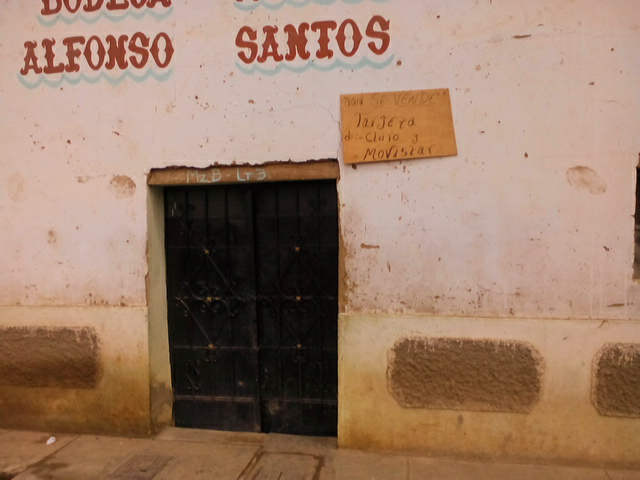 BODEGA
ALFONSO SANTOS
SE VENDE
Tarjeta
de Claro y
MOVISTAR
MzB Lt 3.